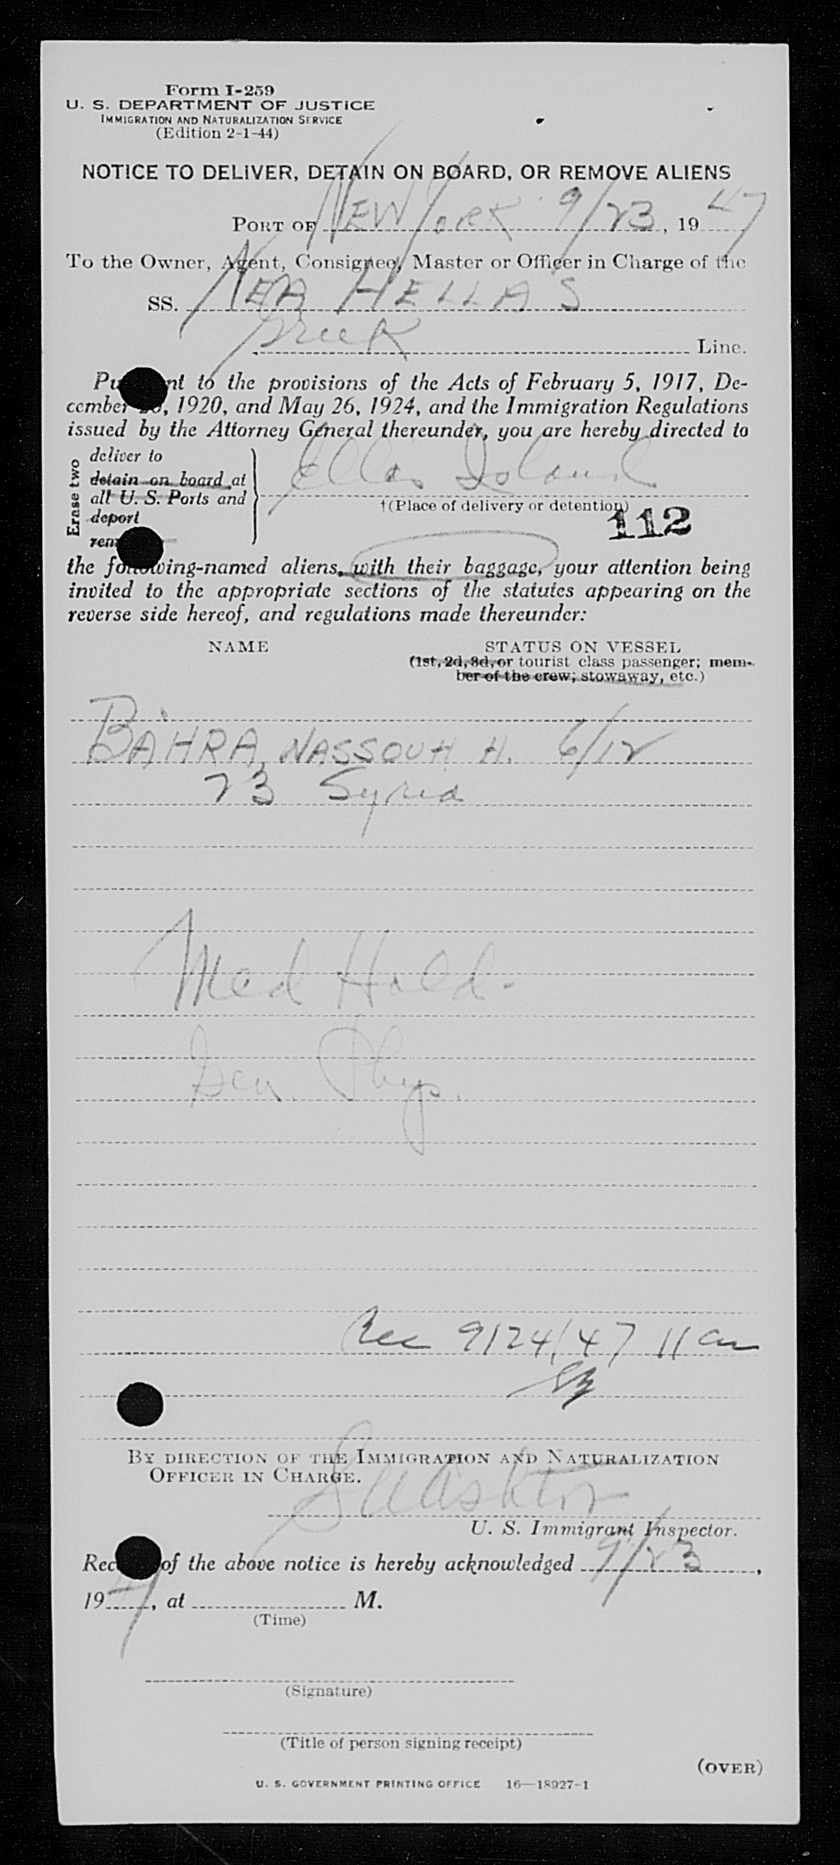 Form I-259
U. S. DEPARTMENT OF JUSTICE
IMMIGRATION AND NATURALIZATION SERVICE
(Edition 2-1-44)
NOTICE TO DELIVER, DETAIN ON BOARD, OR REMOVE ALIENS
PORT OF New York 9/23, 1947
To the Owner, Agent, Consignee, Master or Officer in Charge of the
SS. NEA HELLAS
Greek Line.
Pursuant to the provisions of the Acts of February 5, 1917, De-
cember , 1920, and May 26, 1924, and the Immigration Regulations
issued by the Attorney General thereunder, you are hereby directed to
Erase two
deliver to
detain on board at
all U. S. Ports and
deport
Ellis Island
†(Place of delivery or detention)
112
the following-named aliens, with their baggage, your attention being
invited to the appropriate sections of the statutes appearing on the
reverse side hereof, and regulations made thereunder:
NAME STATUS ON VESSEL
(1st, 2d, 3d, or tourist class passenger; mem-
ber of the crew; stowaway, etc.)
BAHRA, NASSOUH H. 6/12
23 Syria
Med Hold.
Gen. Phys.
Rec 9/24/47 11 am
BY DIRECTION OF THE IMMIGRATION AND NATURALIZATION
OFFICER IN CHARGE.
U. S. Immigrant Inspector.
Rec of the above notice is hereby acknowledged 9/23,
1947, at M.
(Time)
(Signature)
(Title of person signing receipt)
(OVER)
U. S. GOVERNMENT PRINTING OFFICE 16—18927-1